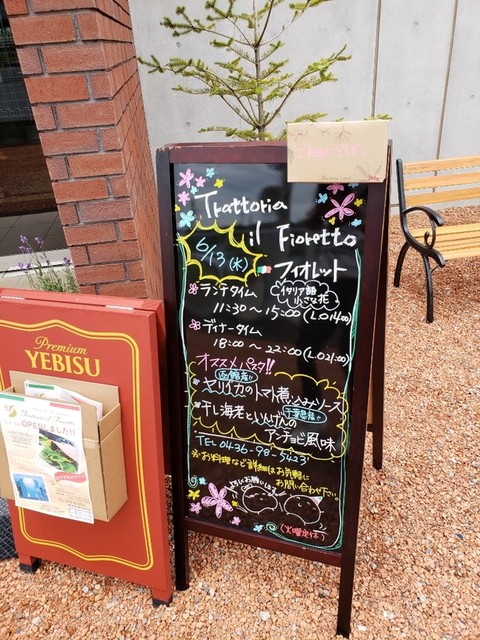 Trattoria
il Fioretto
フィオレット
6/13(木)
イタリア語
小さな花
ランチタイム
11:30〜15:00(L.O14:00)
ディナータイム
18:00〜22:00(L.O21:00)
オススメパスタ!!
函館産!!
ヤリイカのトマト煮込みソース
千葉県産!!
干し海老といんげんの
アンチョビ風味
TEL 0436-98-5423
※お料理など詳細はお気軽に
お問い合わせ下さい。
よろしくお願いします
(火曜定休)
Premium
YEBISU
OPENしました!!